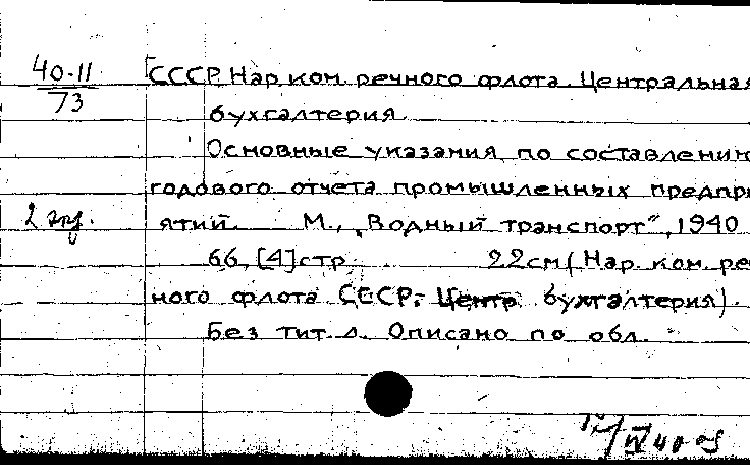 40-11
73
СССР. Нар. ком. речного флота. Центральная
бухгалтерия.
Основные указания по составлению
годового отчета промышленных предпри
2 экз.
ятий. М., „Водный транспорт“, 1940
66, [4] стр. 22 см (Нар. ком. ре
ного флота СССР. Центр. бухгалтерия).
Без тит. л. Описано по обл.